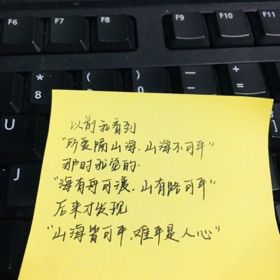 F6 F7 F8 F9
U
J
以前我看到
"所爱隔山海,山海不可平"
那时我觉的.
"海有舟可渡,山有路可平"
后来才发现
"山海皆可平,难平是人心"